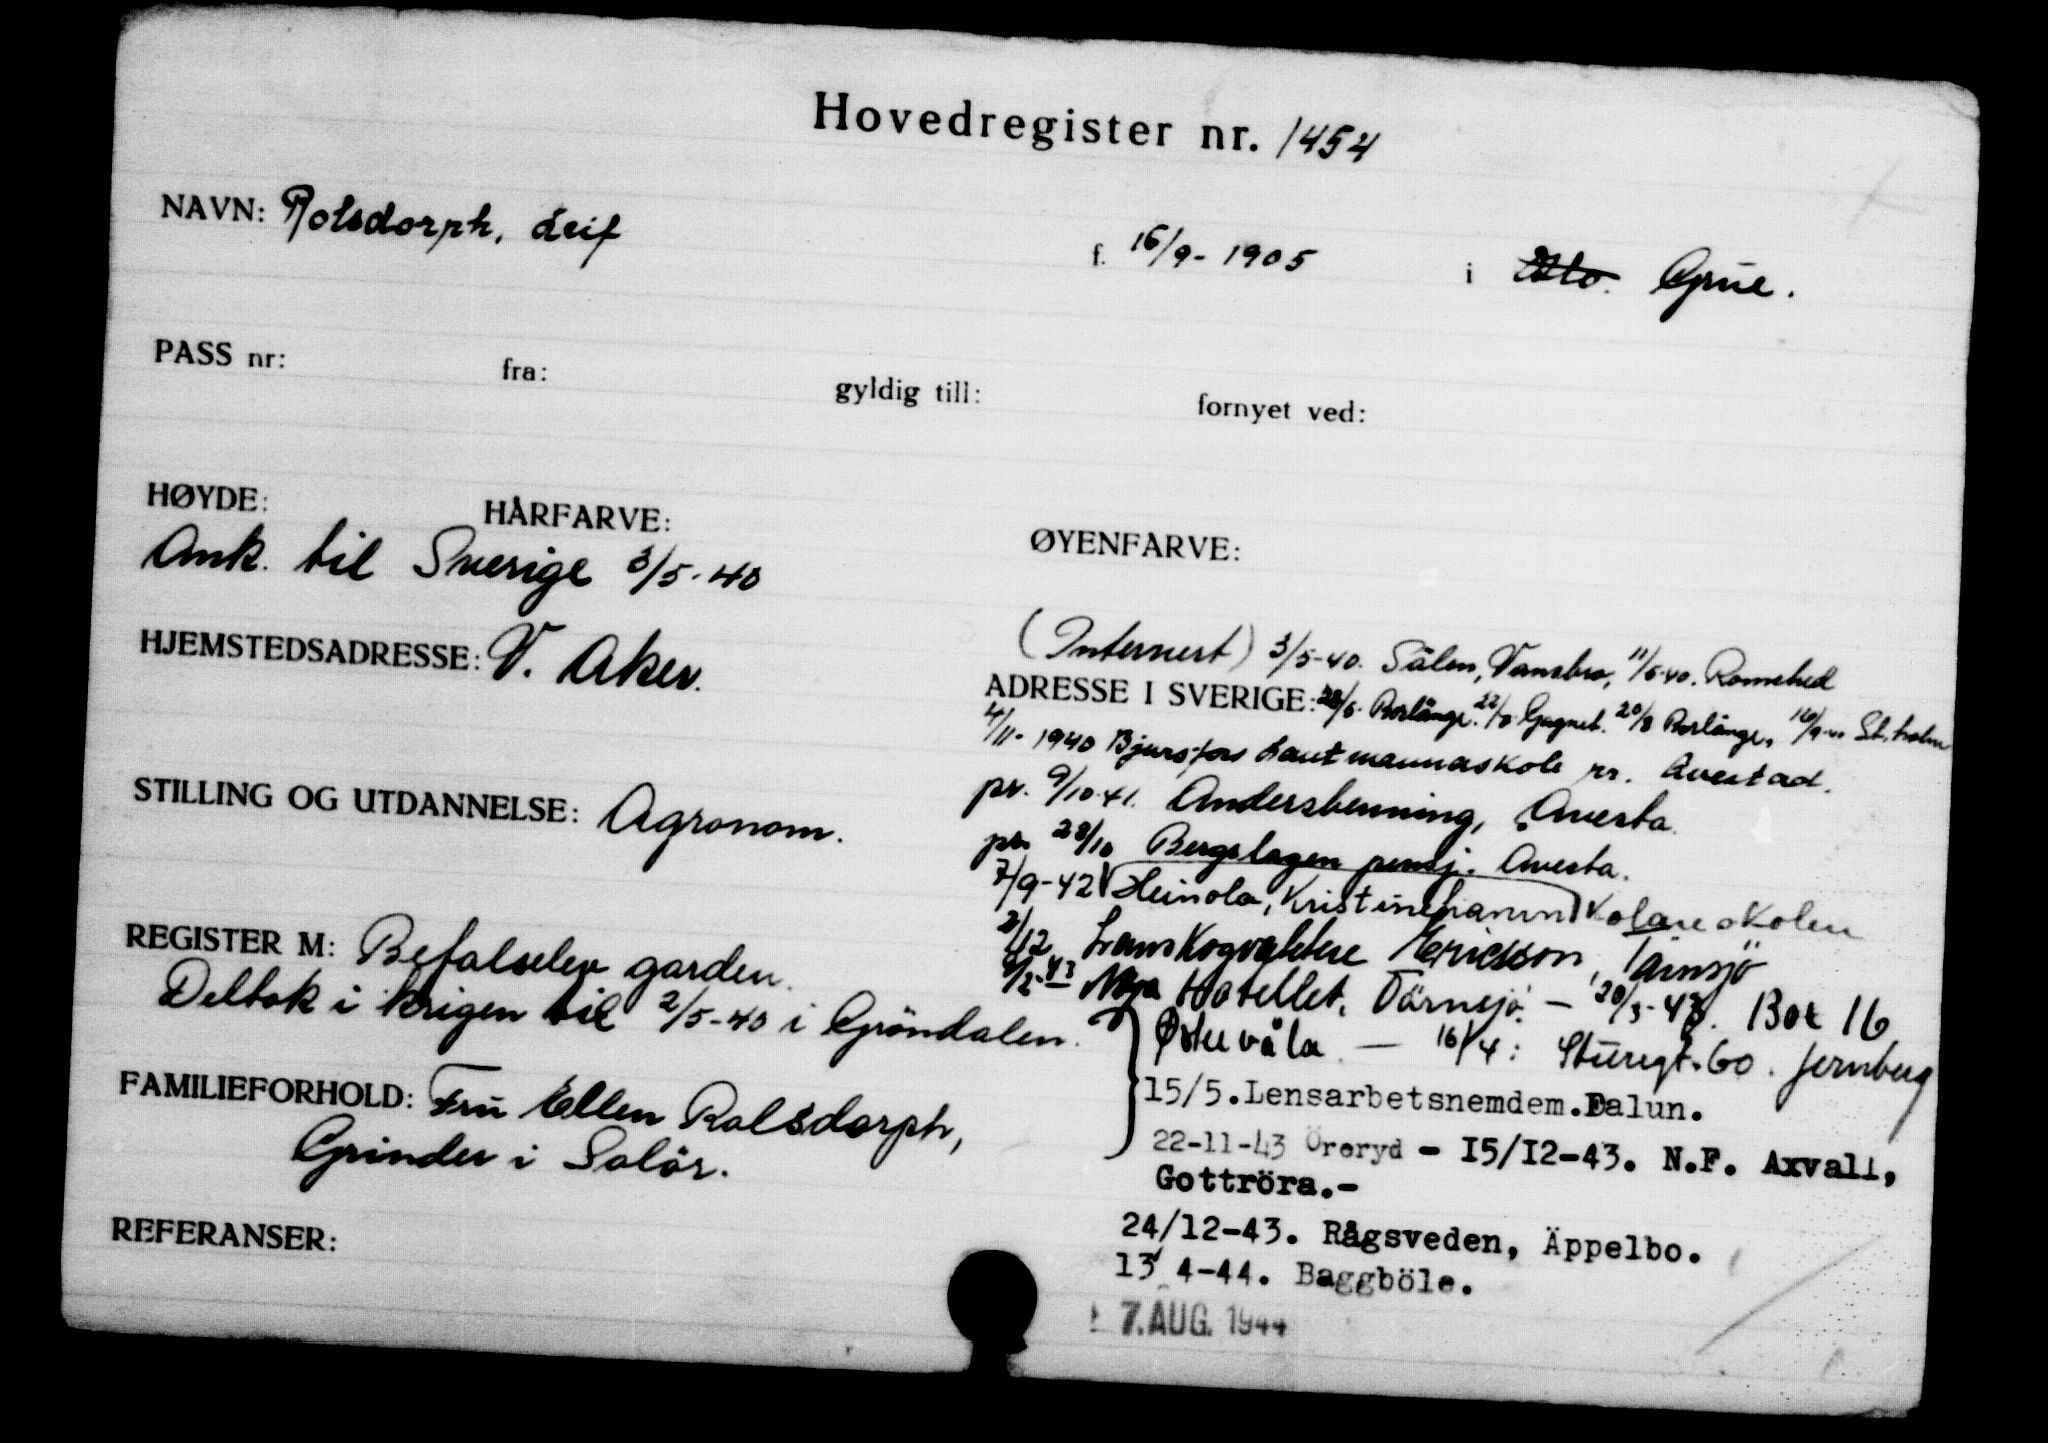 Hovedregister nr. 1454
NAVN: Rolsdorph, Leif f. 16/9-1905 i Oslo. Grue.
PASS nr: fra: gyldig till: fornyet ved:
HØYDE: HÅRFARVE: ØYENFARVE:
Ank. til Sverige 3/5-40
HJEMSTEDSADRESSE: V. Aker.
STILLING OG UTDANNELSE: Agronom.
REGISTER M: Befalselev garden.
Deltok i krigen til 2/5-40 i Gröndalen.
FAMILIEFORHOLD: Fru Ellen Rolsdorph,
Grinder i Solör.
REFERANSER:
(Internert) 3/5-40. Sälen, Vansbro, 11/5-40. Romehed
ADRESSE I SVERIGE: 28/6. Borlänge. 22/8 Gagnet. 20/8 Borlänge, 16/9-40 St.holm
4/11-1940 Bjursfors Lantmannaskole pr. Avestad.
pr. 9/10-41. Andersbenning, Avesta.
pr. 28/10 Bergslagen pensj. Avesta.
7/9-42 Heinola, Kristinehamn Kolareskolen
2/12 Länskogvaktere Ericsson, Tärnsjö
9/2-43 Nya Hotellet, Tärnsjö. - 20/3-43. Box 16
Østervåla - 16/4: Sturegt. 60. Jernberg
15/5.Lensarbetsnemdem.Falun.
22-11-43 Öreryd - 15/12-43. N.F. Axvall,
Gottröra.-
24/12-43. Rågsveden, Äppelbo.
13/4-44. Baggböle.
7. AUG. 1944